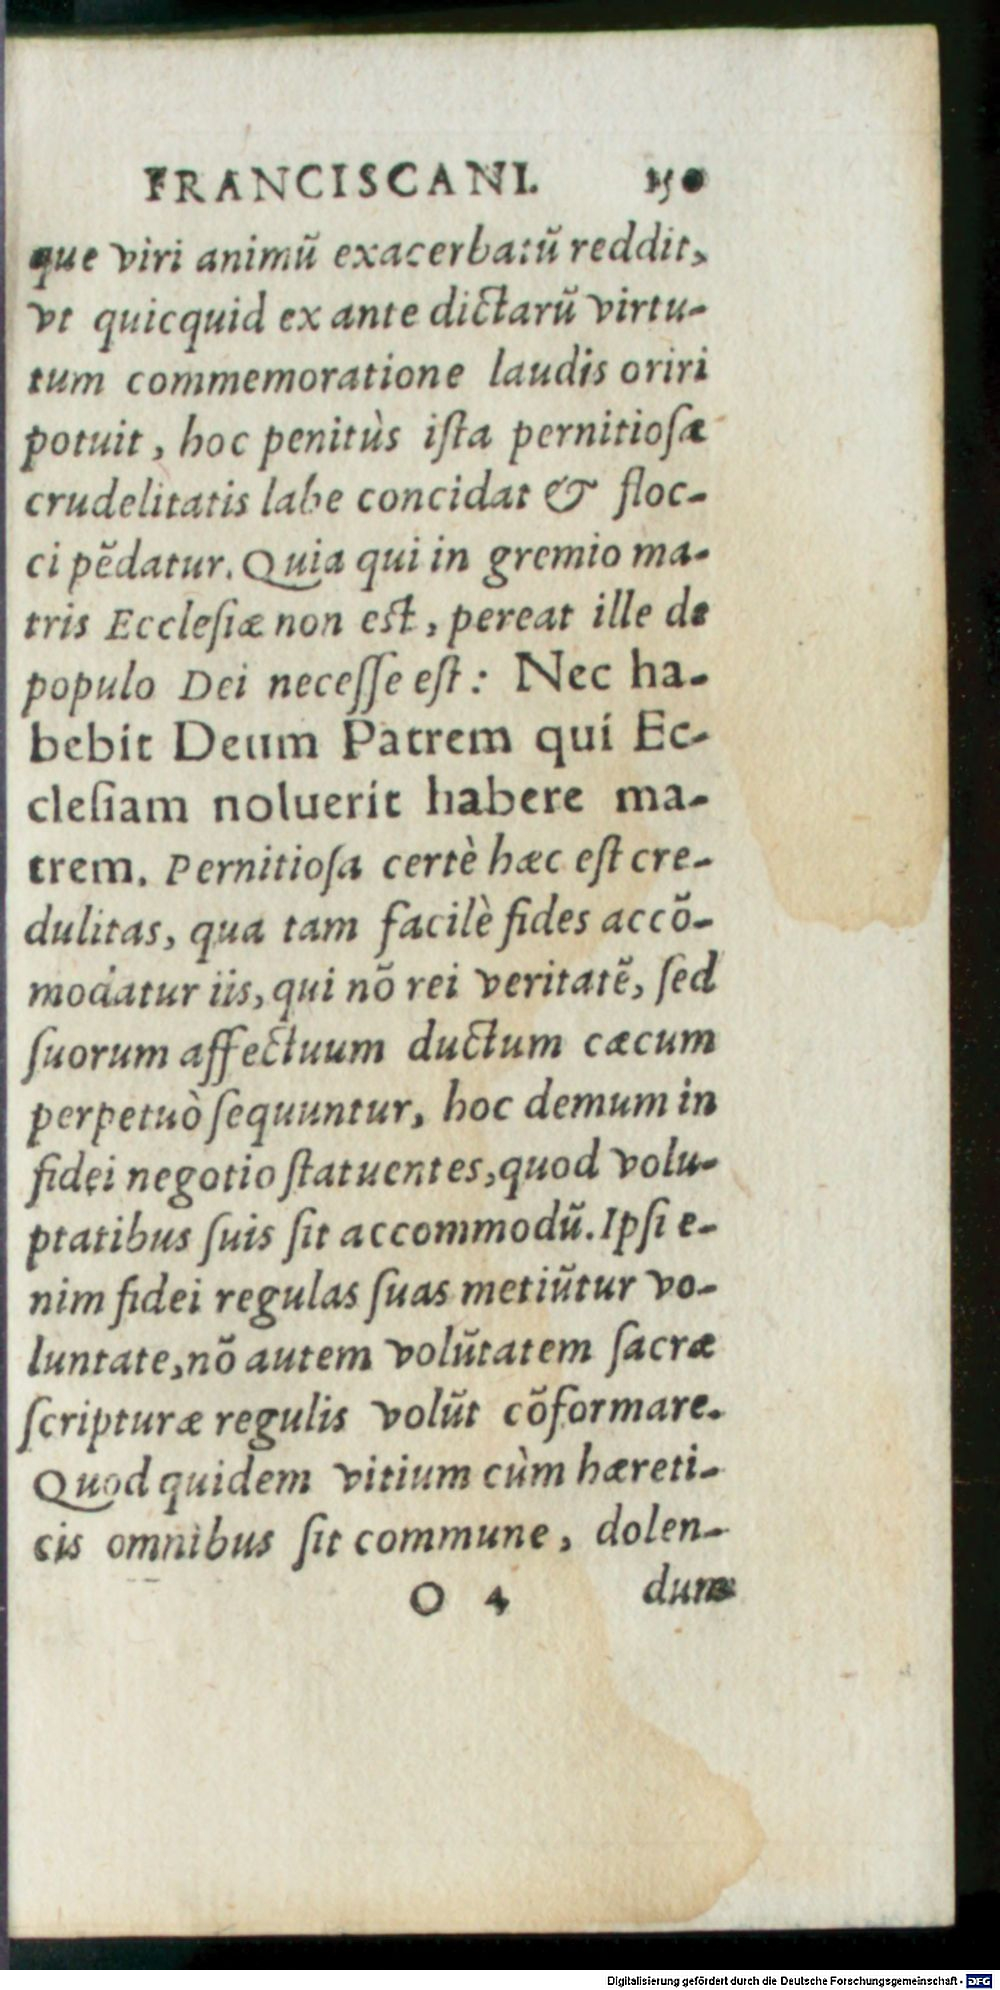 FRANCISCANI. 150
que viri animũ exacerbatũ reddit,
vt quicquid ex ante dictarũ virtu-
tum commemoratione laudis oriri
potuit, hoc penitùs iſta pernitioſæ
crudelitatis labe concidat & floc-
ci pẽdatur. Quia qui in gremio ma-
tris Eccleſiæ non eſt, pereat ille de
populo Dei neceſſe eſt: Nec ha-
bebit Deum Patrem qui Ec-
cleſiam noluerit habere ma-
trem. Pernitioſa certè hæc eſt cre-
dulitas, qua tam facilè fides accõ-
modatur iis, qui nõ rei veritatẽ, ſed
ſuorum affectuum ductum cæcum
perpetuò ſequuntur, hoc demum in
fidei negotio ſtatuentes, quod volu-
ptatibus ſuis ſit accommodũ. Ipſi e-
nim fidei regulas ſuas metiũtur vo-
luntate, nõ autem volũtatem ſacræ
ſcripturæ regulis volũt cõformare.
Quod quidem vitium cùm hæreti-
cis omnibus ſit commune, dolen-
O 4 dum
Digitalisierung gefördert durch die Deutsche Forschungsgemeinschaft - DFG